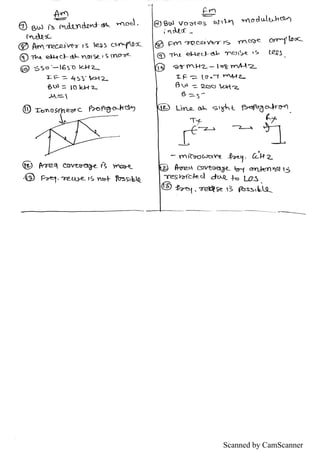 Am
⑦ BW is independent of mod.
index
⑧ Am receiver is less complex
⑨ The effect of noise is more
⑩ 550 - 1650 kHz
IF = 455 kHz
BW = 10 kHz
μ = 1
⑪ Ionospheric Propagation
⑫ Area coverage is more
⑬ Freq. reuse is not Possible
Fm
⑦ BW varies with modulation
index.
⑧ Fm receiver is more complex
⑨ The effect of noise is less.
⑩ 88 MHz - 108 MHz
IF = 10.7 MHz
BW = 200 kHz
β = 5
Line of sight Propagation.
Tx
Rx
- microwave freq. GHz
⑫ Area coverage by antenna is
restricted due to LOS.
⑬ freq. reuse is Possible
Scanned by CamScanner